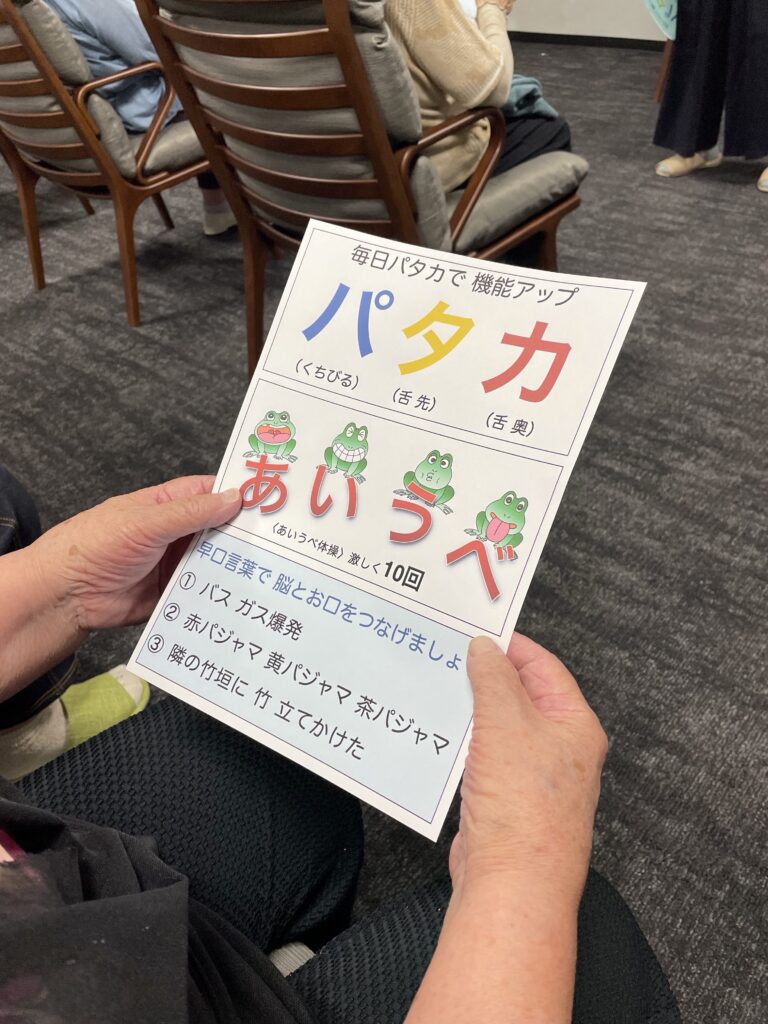 毎日パタカで 機能アップ
パタカ
(くちびる) (舌 先) (舌 奥)
あいうべ
〈あいうべ体操〉激しく10回
早口言葉で 脳とお口をつなげましょ
① バス ガス爆発
② 赤パジャマ 黄パジャマ 茶パジャマ
③ 隣の竹垣に 竹 立てかけた